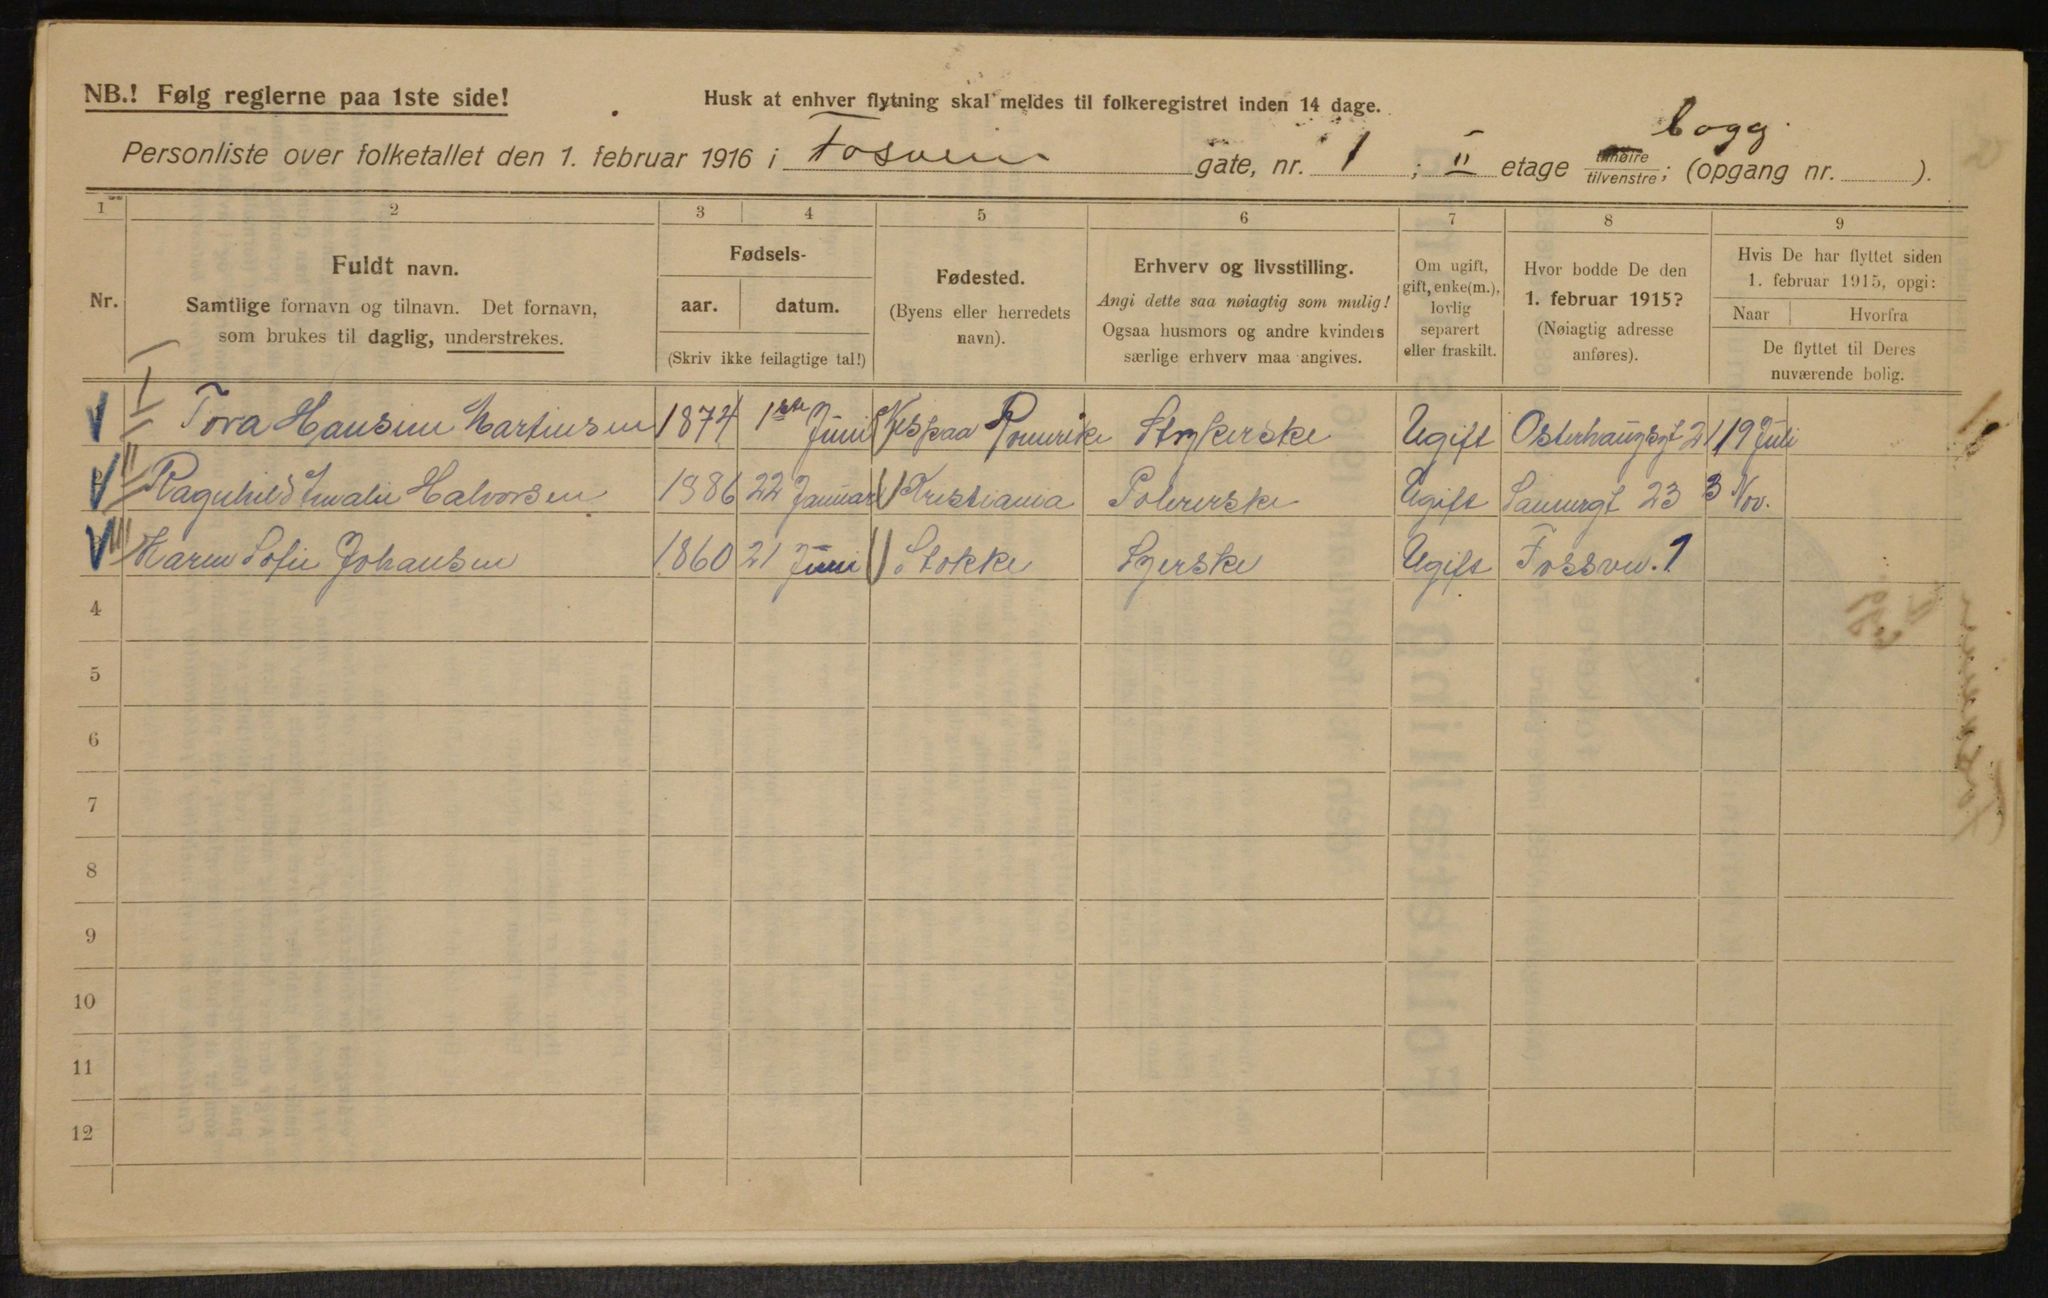 NB.! Følg reglerne paa 1ste side!
Husk at enhver flytning skal meldes til folkeregistret inden 14 dage.
Personliste over folketallet den 1. februar 1916 i Fosvein gate, nr. 1; II etage tilhøire/tilvenstre; bogg (opgang nr. ).
1 2 3 4 5 6 7 8 9
Nr.
Fuldt navn.
Samtlige fornavn og tilnavn. Det fornavn,
som brukes til daglig, understrekes.
Fødsels-
aar. datum.
(Skriv ikke feilagtige tal!)
Fødested.
(Byens eller herredets
navn).
Erhverv og livsstilling.
Angi dette saa nøiagtig som mulig!
Ogsaa husmors og andre kvinders
særlige erhverv maa angives.
Om ugift,
gift, enke(m.),
lovlig
separert
eller fraskilt.
Hvor bodde De den
1. februar 1915?
(Nøiagtig adresse
anføres).
Hvis De har flyttet siden
1. februar 1915, opgi:
Naar Hvorfra
De flyttet til Deres
nuværende bolig.
I Tora Hansine Martinsen 1874 1ste Juni Romerike Strykerske Ugift Osterhausgt 21 19 Juli
II Ragnhild Amalie Halvorsen 1886 22 Januar Kristiania Polererske Ugift 23 3 Nov.
III Karen Sofie Johansen 1860 21 Juni Stokke Syerske Ugift Fossvn. 1
4
5
6
7
8
9
10
11
12